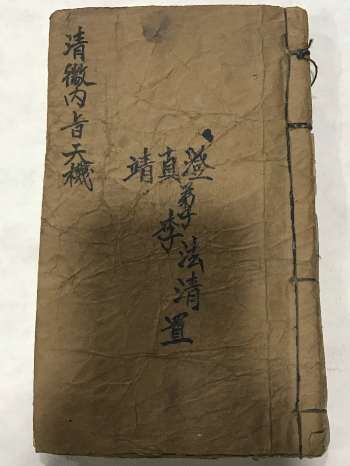 清微内旨天機
澄真靖
弟子李法清置